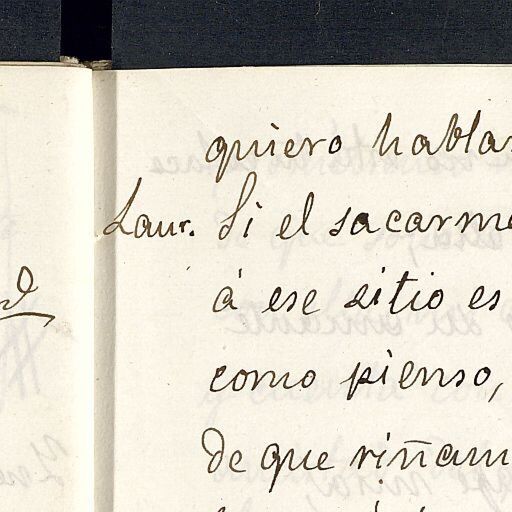 quiero hablar
Laur. Si el sacarme
á ese sitio es
como pienso,
de que riñam